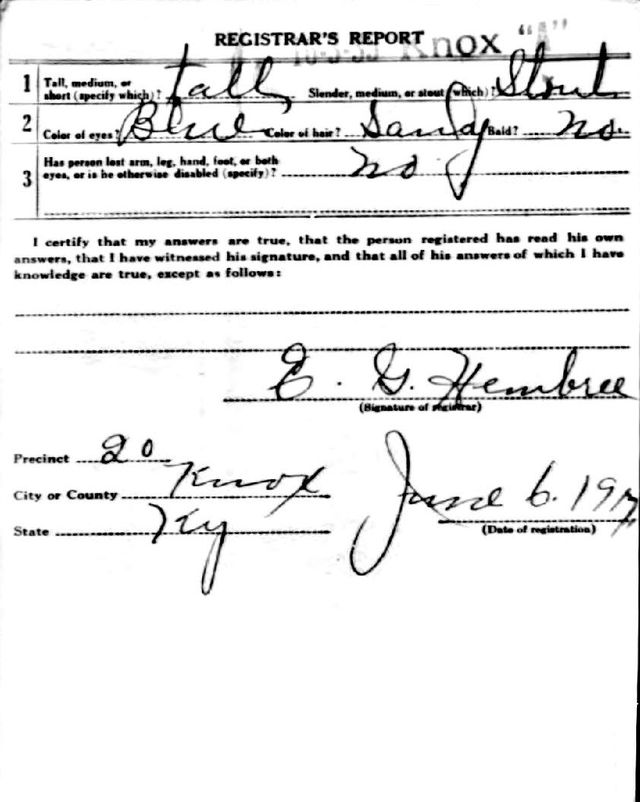 REGISTRAR'S REPORT Knox "A"
1 Tall, medium, or short (specify which)? Tall Slender, medium, or stout (which)? Stout
2 Color of eyes? Blue Color of hair? Sandy Bald? No.
3 Has person lost arm, leg, hand, foot, or both eyes, or is he otherwise disabled (specify)? No
I certify that my answers are true, that the person registered has read his own
answers, that I have witnessed his signature, and that all of his answers of which I have
knowledge are true, except as follows:
E. G. Hembree
(Signature of registrar)
Precinct 20
City or County Knox
State Ky
June 6. 1917
(Date of registration)